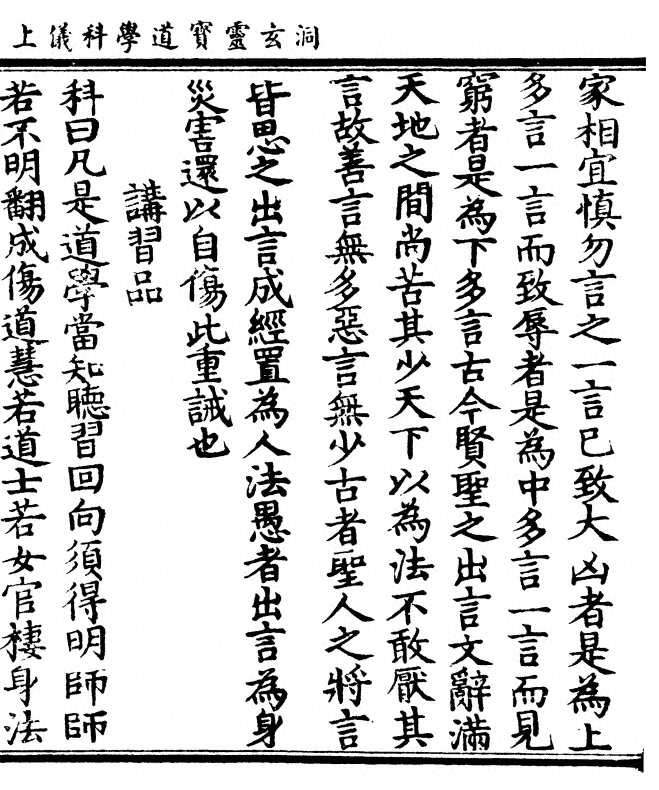 洞玄靈寶道學科儀上
家相宜慎勿言之一言已致大凶者是為上
多言一言而致辱者是為中多言一言而見
窮者是為下多言古今賢聖之出言文辭滿
天地之間尚苦其少天下以為法不敢厭其
言故善言無多惡言無少古者聖人之將言
皆思之出言成經置為人法愚者出言為身
災害還以自傷此重誡也
講習品
科曰凡是道學當知聽習回向須得明師師
若不明翻成傷道慧若道士若女官棲身法